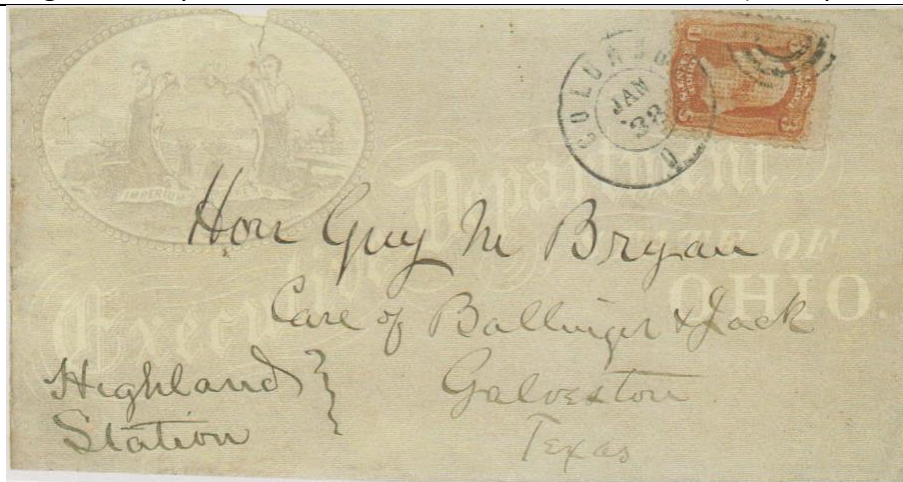 IMPERIUM
JAN
'32
3
Executive Department
STATE OF
OHIO.
Hon Guy M Bryan
Care of Ballinger & Jack
Galveston
Texas
Highland
Station